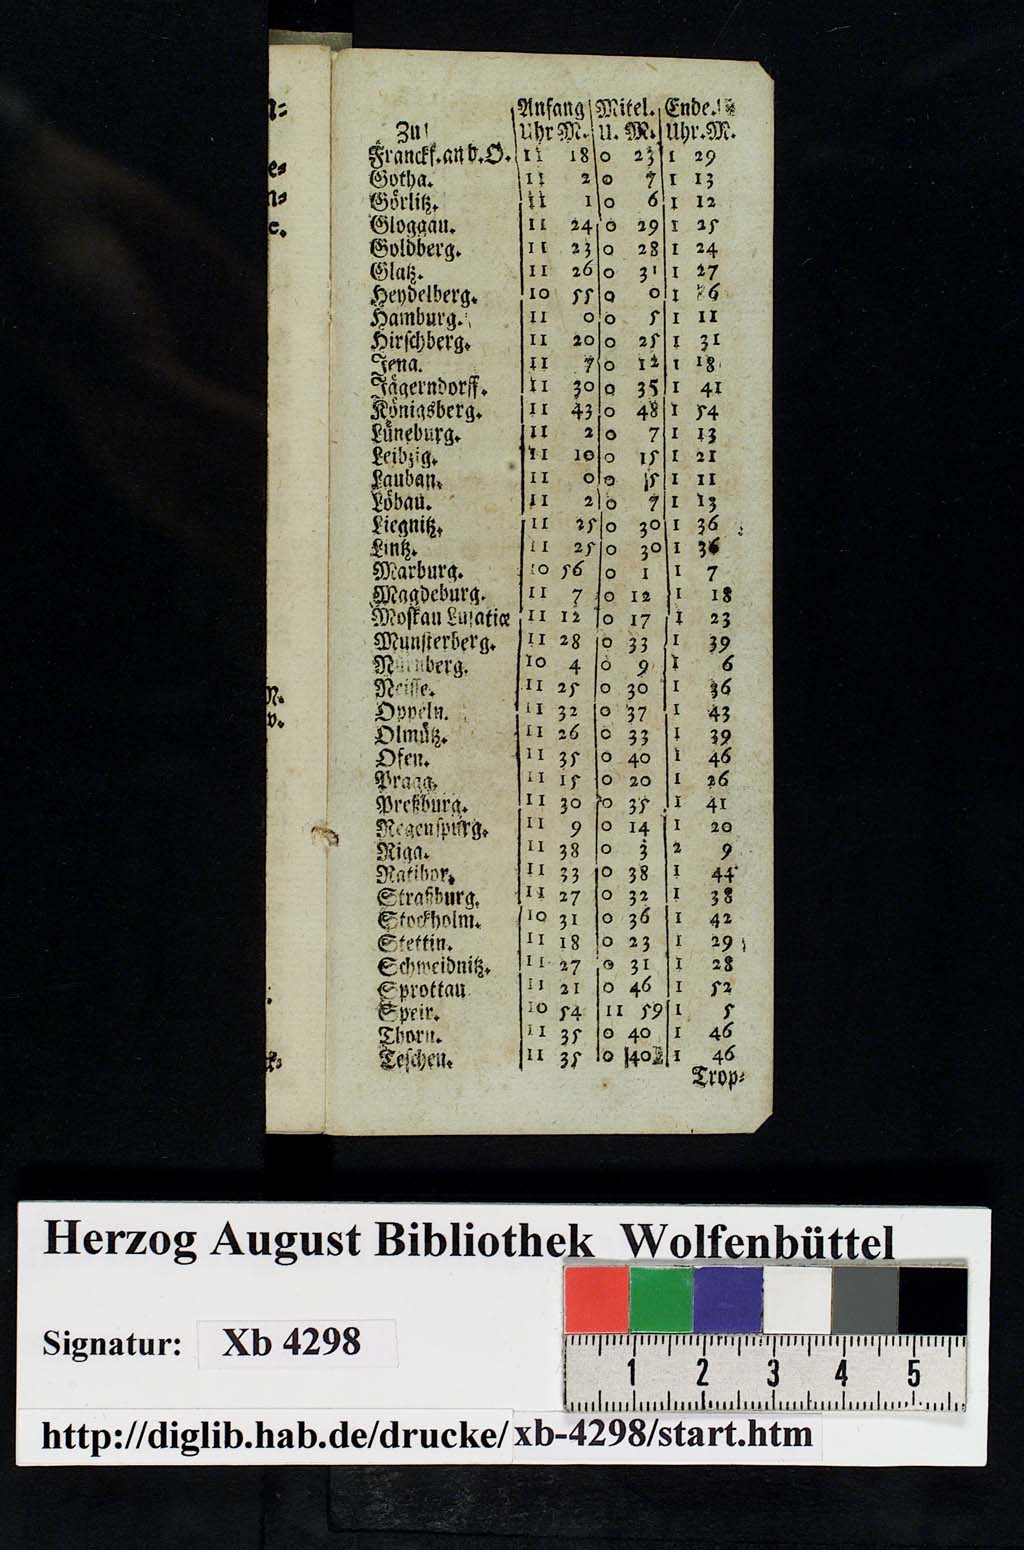 Anfang Mitel. Ende.
Zu Uhr M. U. M. Uhr. M.
Franckf. an d. O. 11 18 0 23 1 29
Gotha. 11 2 0 7 1 13
Görlitz. 11 1 0 6 1 12
Gloggau. 11 24 0 29 1 25
Goldberg. 11 23 0 28 1 24
Glatz. 11 26 0 31 1 27
Heydelberg. 10 55 0 0 1 6
Hamburg. 11 0 0 5 1 11
Hirschberg. 11 20 0 25 1 31
Jena. 11 7 0 12 1 18
Jägerndorff. 11 30 0 35 1 41
Königsberg. 11 43 0 48 1 54
Lüneburg. 11 2 0 7 1 13
Leibzig. 11 10 0 15 1 21
Lauban. 11 0 0 5 1 11
Löbau. 11 2 0 7 1 13
Liegnitz. 11 25 0 30 1 36
Lintz. 11 25 0 30 1 36
Marburg. 10 56 0 1 1 7
Magdeburg. 11 7 0 12 1 18
Moskau Lusatiæ 11 12 0 17 1 23
Munsterberg. 11 28 0 33 1 39
Nürnberg. 10 4 0 9 1 6
Neisse. 11 25 0 30 1 36
Oppeln. 11 32 0 37 1 43
Olmütz. 11 26 0 33 1 39
Ofen. 11 35 0 40 1 46
Pragg. 11 15 0 20 1 26
Preßburg. 11 30 0 35 1 41
Regenspurg. 11 9 0 14 1 20
Riga. 11 38 0 3 2 9
Ratibor. 11 33 0 38 1 44
Straßburg. 11 27 0 32 1 38
Stockholm. 10 31 0 36 1 42
Stettin. 11 18 0 23 1 29
Schweidnitz. 11 27 0 31 1 28
Sprottau 11 21 0 46 1 52
Speir. 10 54 11 59 1 5
Thorn. 11 35 0 40 1 46
Teschen. 11 35 0 40 1 46
Trop⸗
Herzog August Bibliothek Wolfenbüttel
Signatur: Xb 4298
1 2 3 4 5
http://diglib.hab.de/drucke/xb-4298/start.htm